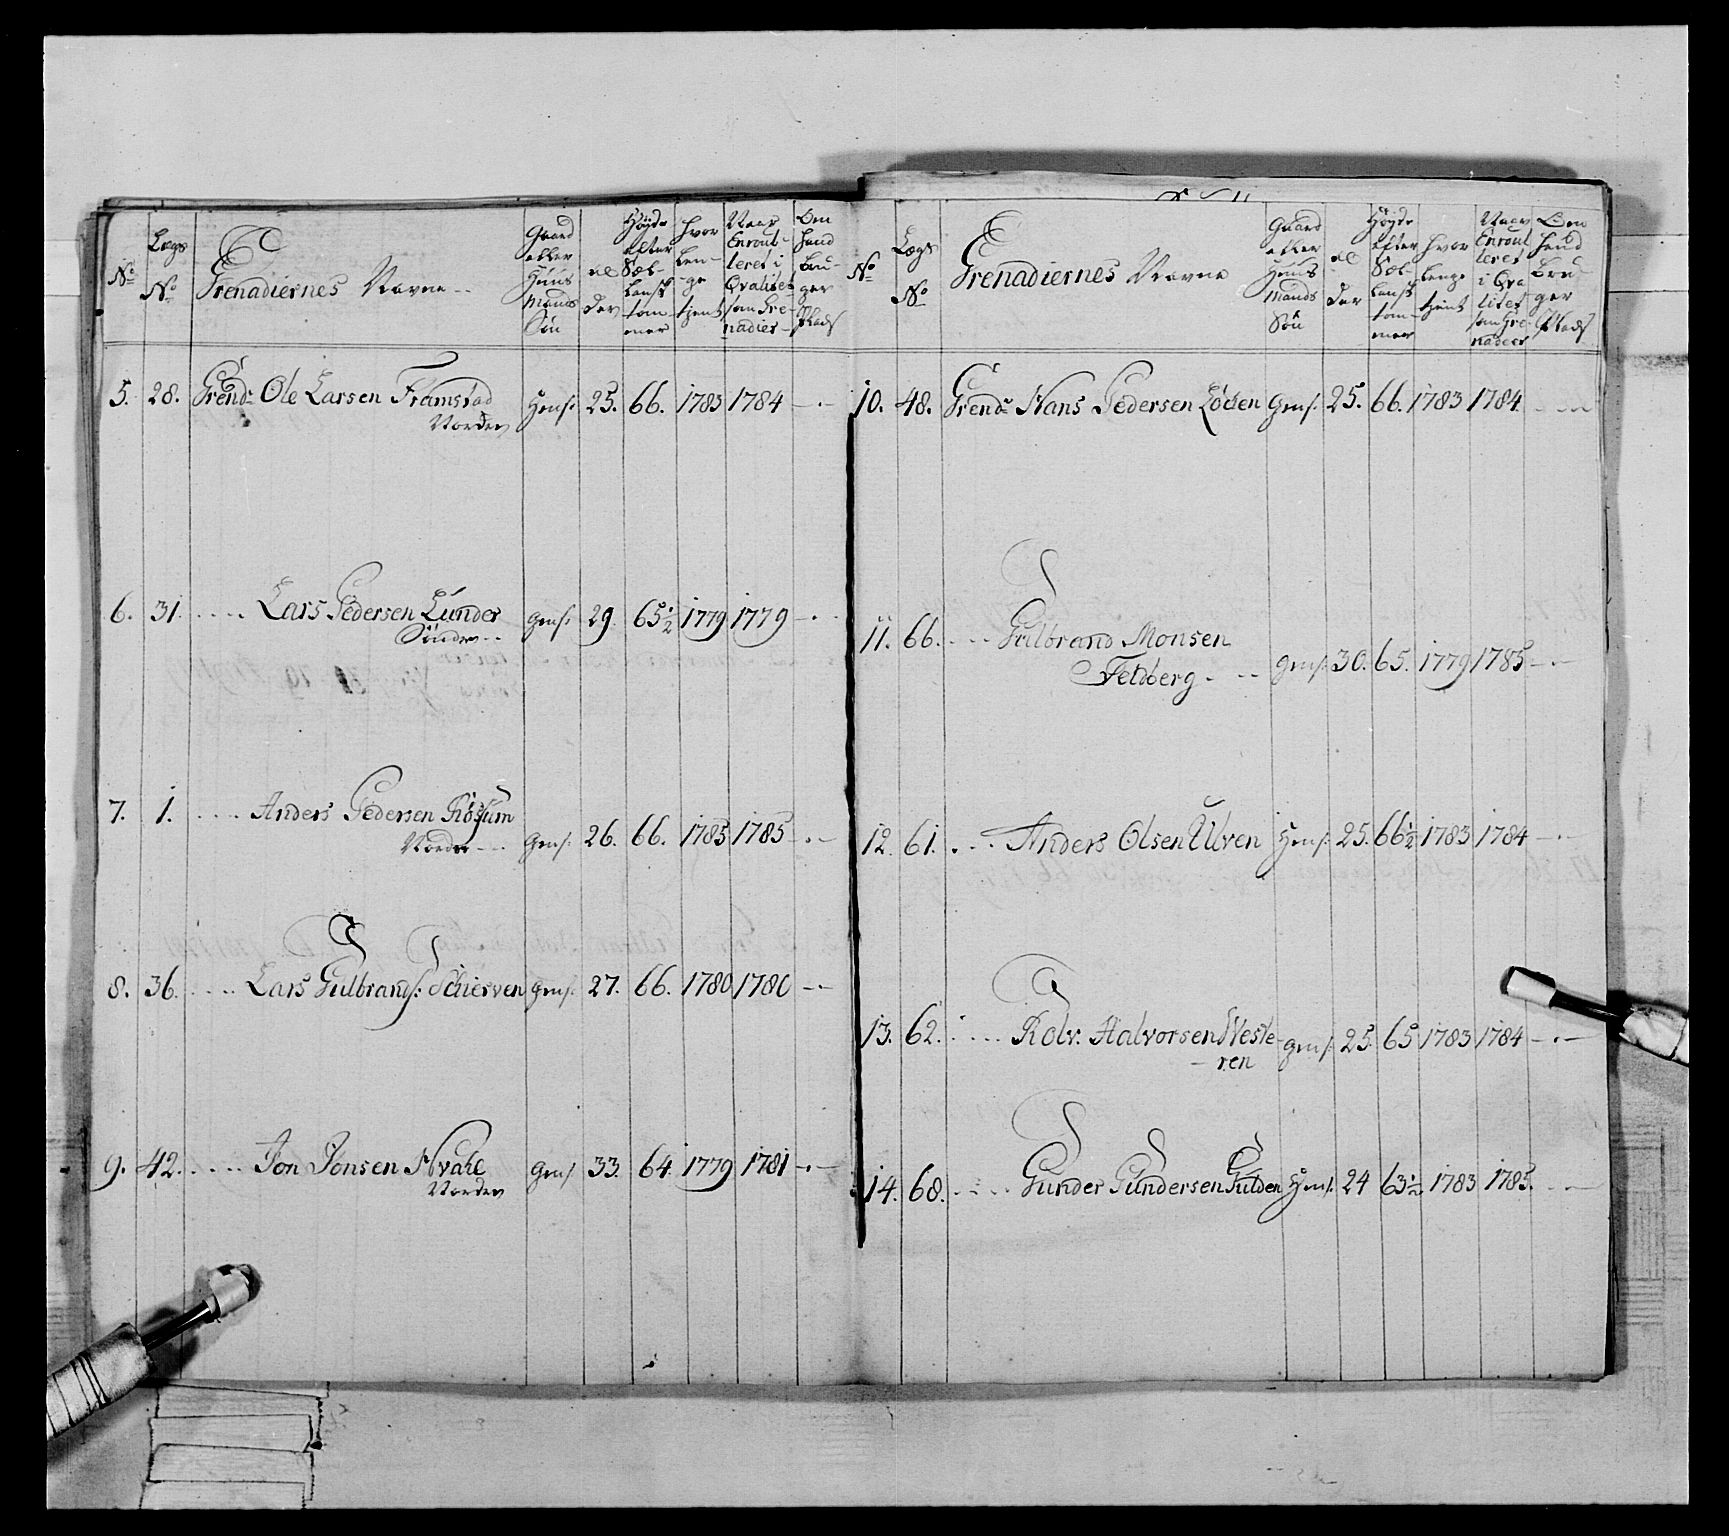 No
Lægs No
Grenadiernes Navne
Gaard eller Huus Mands Søn
alder
Høyde efter Sæl-landsk tom-mer
hvor Len-ge tient
Naar Enroul-leret i Qvalitet som Gre-nadier
Om hand Bru-ger Plads
5. 28. Grend: Ole Larsen Framstad Hmsr 25. 66. 1783 1784 — . —
Nordre
6. 31. .... Lars Pedersen Lunder gmsr 29. 65½ 1779 1779 — .
Søndre
7. 1. .... Anders Pedersen Røssum gmsr 26. 66. 1783 1785 — . —
Nordre
8. 36. .... Lars Gulbrands: Schierven gmsr 27. 66. 1780 1780 — . —
9. 42. .... Jon Jonsen Hvale gmsr 33. 64. 1779 1781 — . —
Nordre
No
Lægs No
Grenadiernes Navne
Gaard eller Huus Mands Søn
al der
Høyde efter Sæl-landsk tom-mer
hvor Lenge tient
Naar Enroul leret i Qva litet som Gre-nadeer
Om hand Bru-ger Plads
10. 48. Grend: Hans Pedersen Løcken gmsr 25. 66. 1783 1784
11. 66. .... Gulbrand Monsen
Feldberg. gmsr 30. 65. 1779 1785 — . —
12. 61. .... Anders Olsen Ulven Hmsr 25. 66½ 1783 1784 — . —
13. 62. .... Rolv. Halvorsen Veste- gmsr 25. 65 1783 1784 — . —
ren
14. 68. .... Gunder Gundersen Gulden Hmsr 24 63½ 1783 1785. — . —